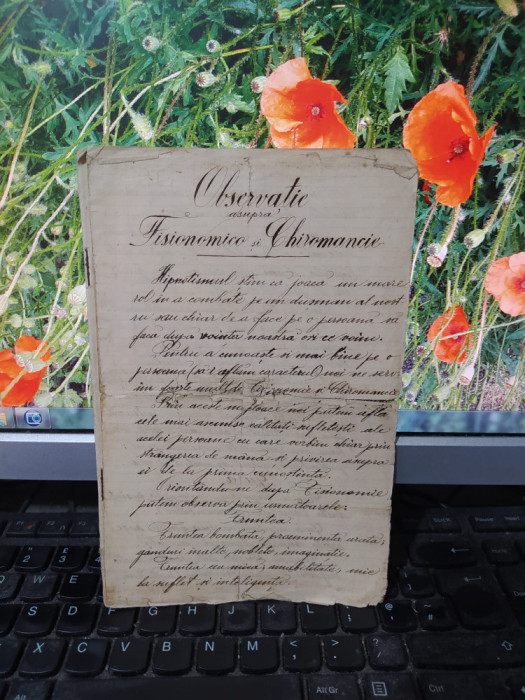 Observație
asupra
Fisionomico și Chiromancie
Hipnotismul știm că joacă un mare
rol în a combate pe un dusman al nost
ru sau chiar de a face pe o persoană să
facă după voința noastră ori ce voim.
Pentru a cunoaște și mai bine pe o
persoană (să'i aflăm caracterul) noi ne ser
vim foarte mult de Fisionomie și Chiromancie
Prin aceste mijloace noi putem afla
cele mai ascunse calități sufletești ale
acelei persoane cu care vorbim chiar prin
strângerea de mână și privirea asupra
ei de la prima cunoștință.
Orientându-ne după Fisionomie
putem observa prin următoarele.
Fruntea.
Fruntea bombată, proeminentă arată,
gânduri înalte, noblețe, imaginație.
Fruntea cea mică, amabilitate, mic
la suflet și inteligență
Q W E R
A S D F G H J K L
X C V B N M
Alt Gr
Ctrl
Pause